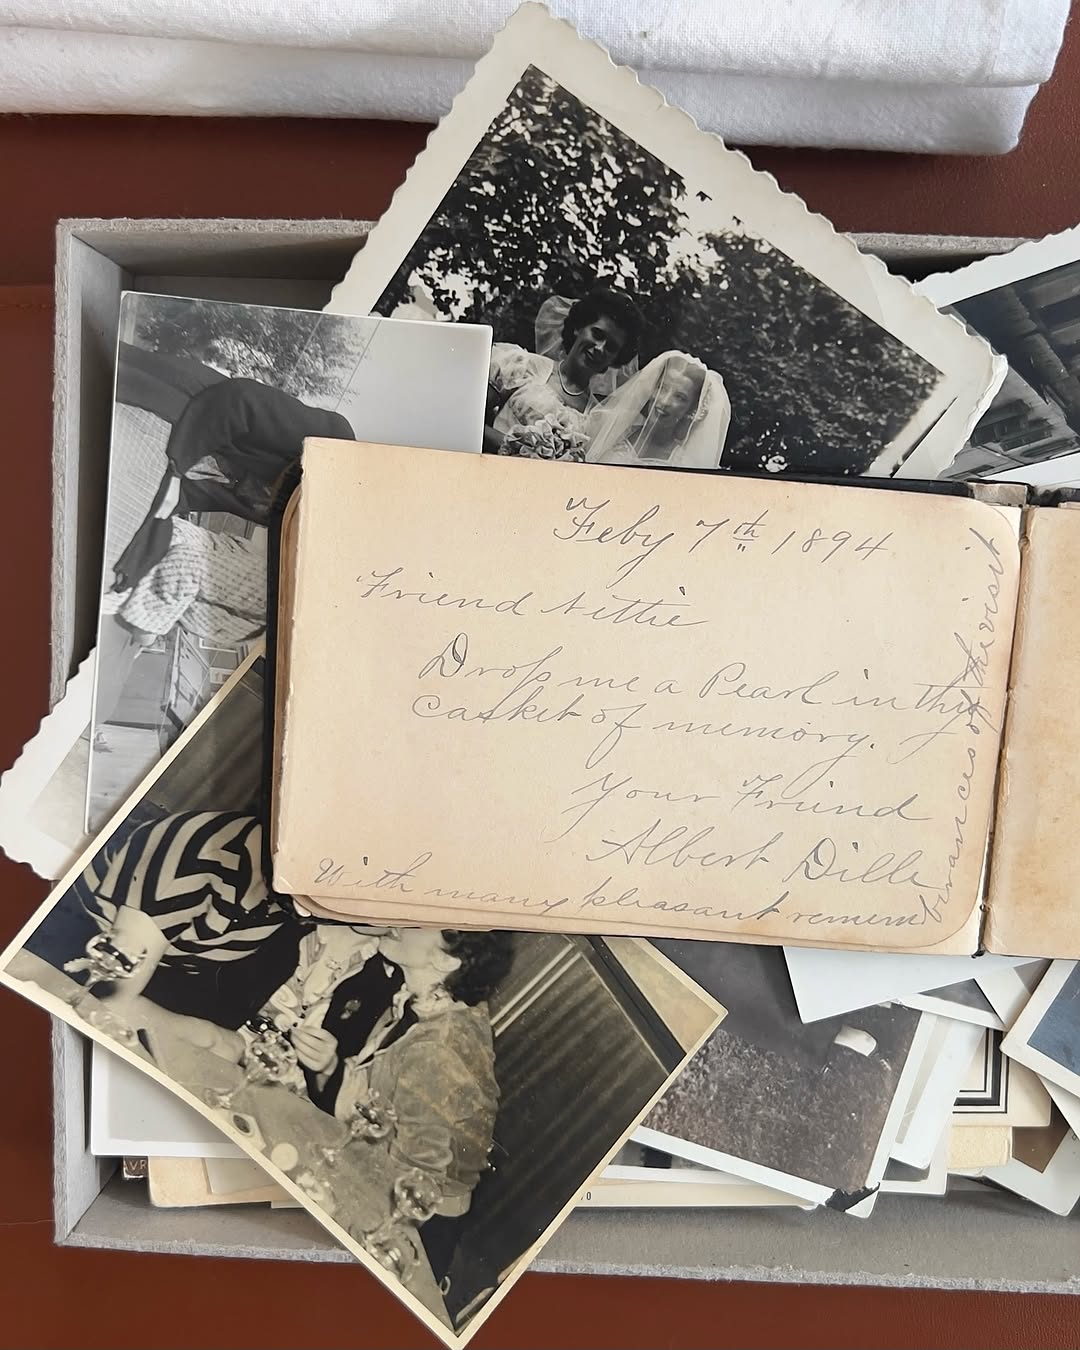 Feby 7th 1894
Friend Nettie
Drop me a Pearl in thy
casket of memory.
Your Friend
Albert Dille
With many pleasant remem
brances of the visit